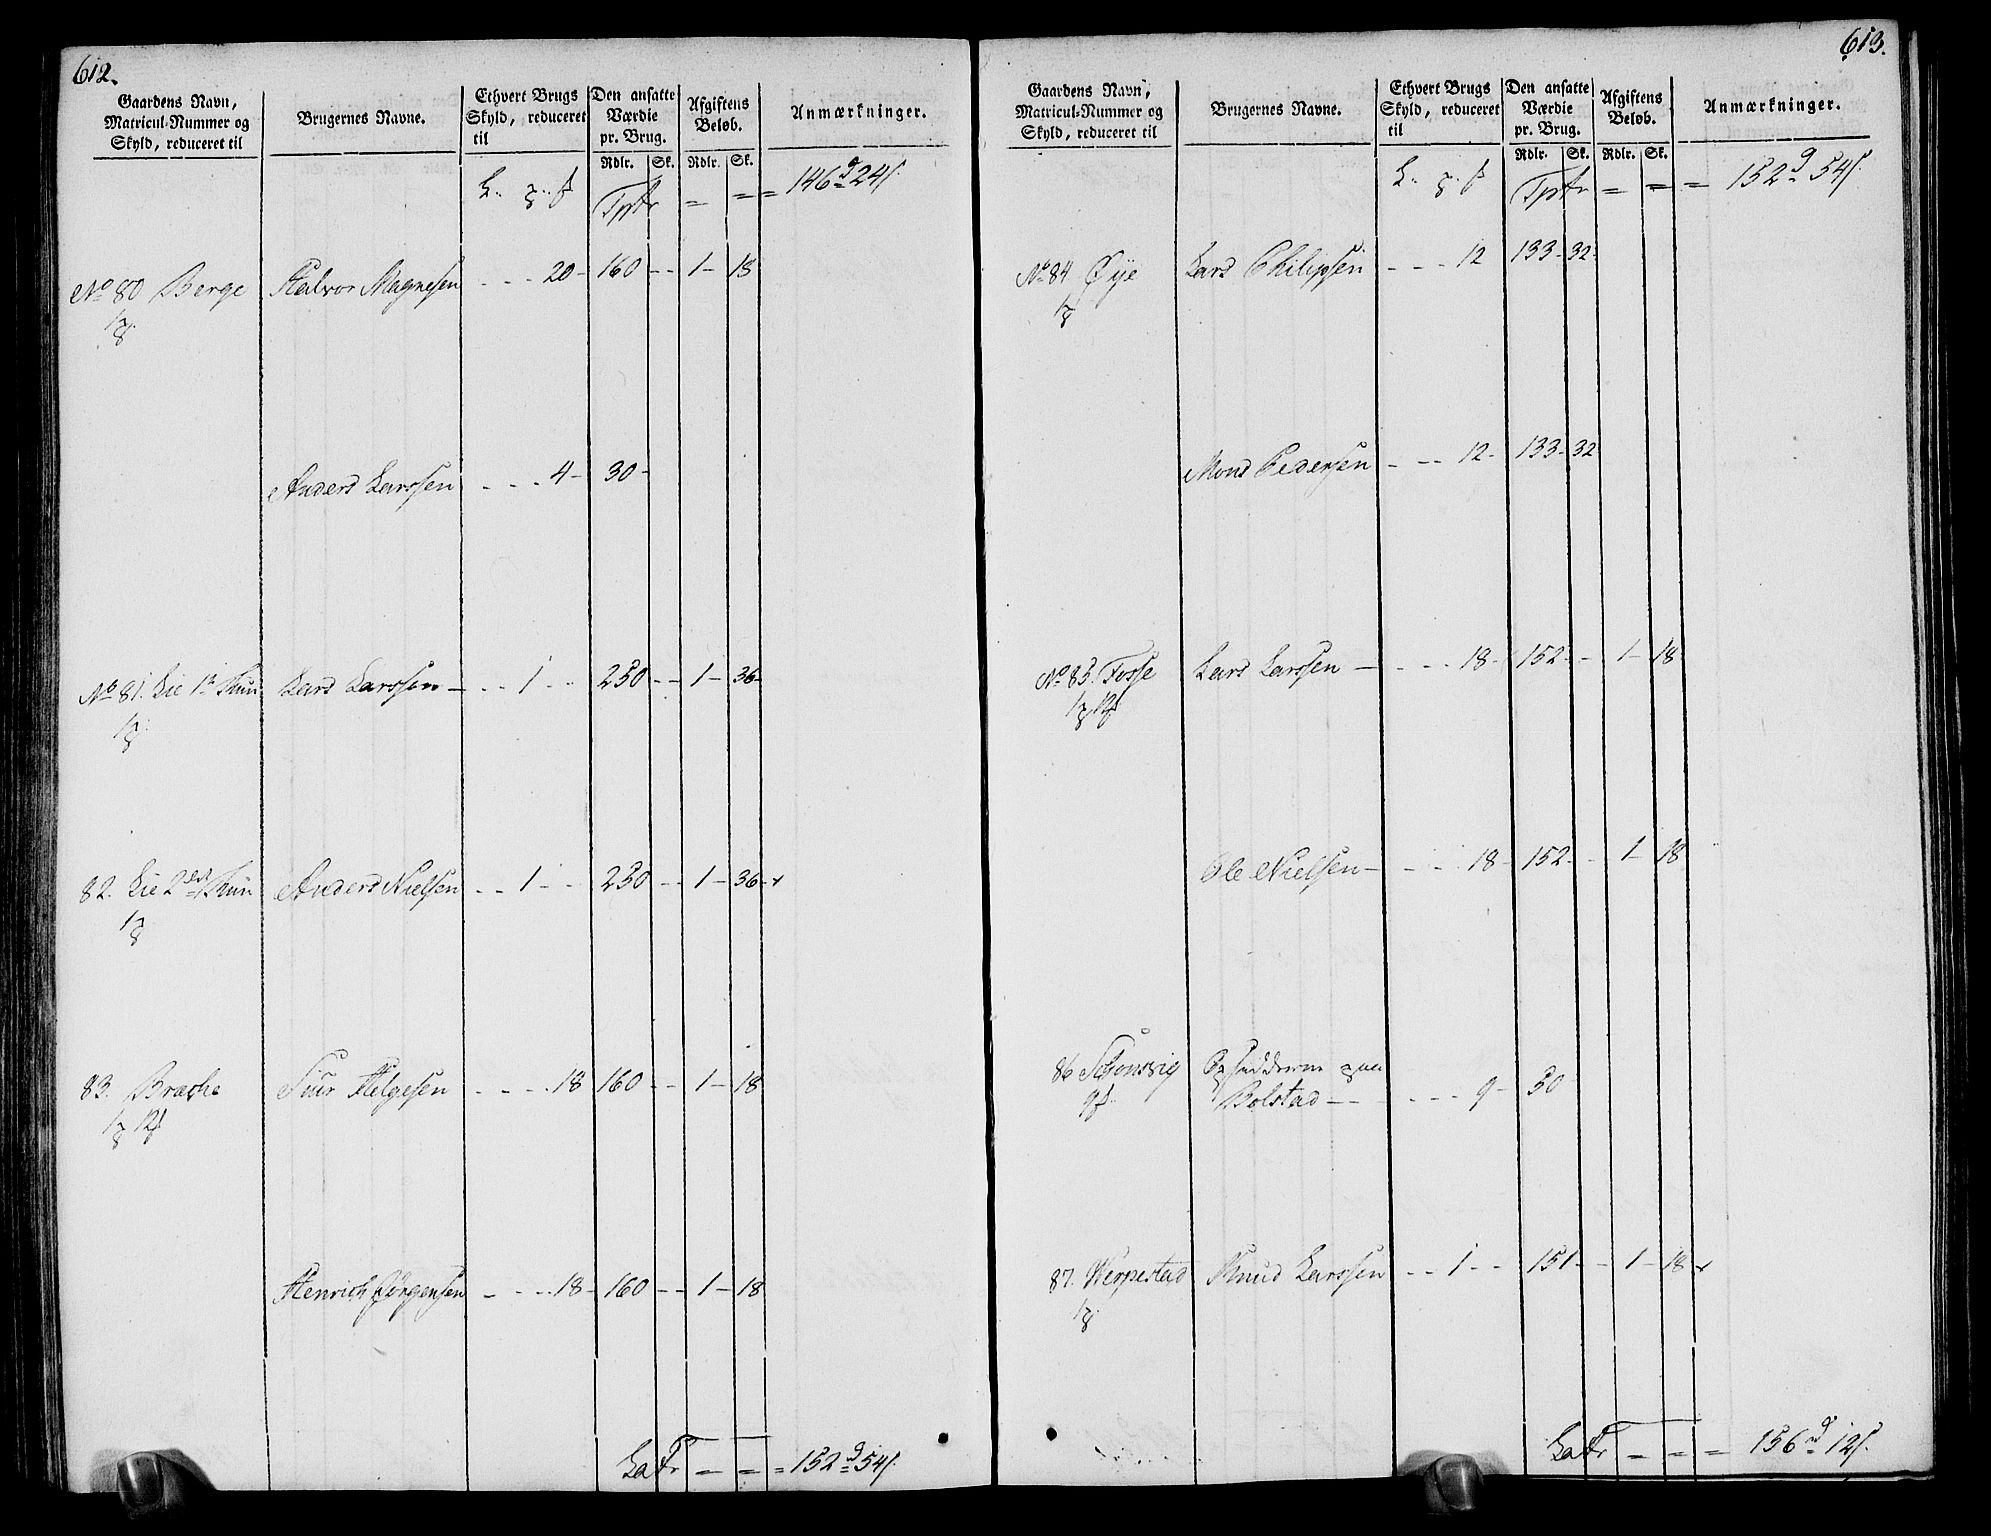 612.
Gaardens Navn, Matricul-Nummer og Skyld, reduceret til
Brugernes Navne.
Ethvert Brugs Skyld, reduceret til
Den ansatte Værdie pr. Brug.
Afgiftens Beløb.
Anmærkninger.
Rdlr. Sk. Rdlr. Sk.
Tptr = = = 146 24
No 80 Berge Halvor Magnesen - - - 20 - 160 - - 1 - 18
1
Anders Larssen - - - 4 - 30 -
No 81. Lie 1 Lars Larssen - - - 1 - - 230 - - 1 - 36 -
1
82. Lie 2 Anders Nielsen - - 1 - - 230 - - 1 - 36 -
1
83. Bræche Siur Helgesen - - - - 18 160 - - 1 - 18
1 12
Henrich Jörgensen - - - - 18 - 160 - - 1 - 18
LaTr = = = 152 54
613.
Gaardens Navn, Matricul-Nummer og Skyld, reduceret til
Brugernes Navne.
Ethvert Brugs Skyld, reduceret til
Den ansatte Værdie pr. Brug.
Afgiftens Beløb.
Anmærkninger.
Rdlr. Sk. Rdlr. Sk.
Tptr = = = 152 54
No 84 Øye Lars Philipsen - - - 12 133 - 32 -
1
Mons Pedersen - - - 12 - 133 - 32
No 85. Fosse Lars Larssen - - - - 18 - 152 - - 1 - 18
1 12
Ole Nielsen - - - - 18 - 152 - - 1 - 18
86 Schonsvig Opsidderne paa
9 Bolstad - - - - - - 9 - 30
87. Werpestad Knud Larssen - - 1 - - 151 - - 1 - 18
1
LaTr - = = 156 12